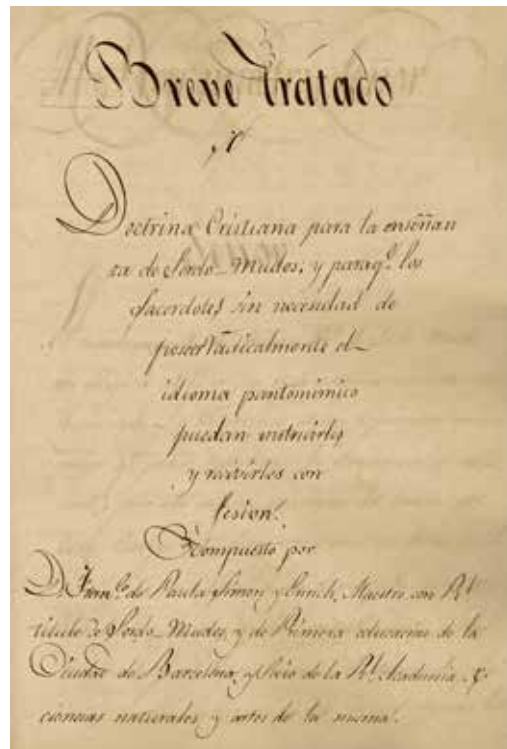 Breve Tratado
de
Doctrina Cristiana para la enseñan
za de Sordo-Mudos, y paraq.e los
sacerdotes sin necesidad de
poseer radicalmente el
idioma pantomímico
puedan instruirles
y recibirles con
fesion.
Compuesto por
D. Fran.co de Paula Simon y Enrich, Maestro con Rl.
título de Sordo-Mudos, y de Primera educacion de la
Ciudad de Barcelona, y Socio de la Rl. Academia de
ciencias naturales y artes de la misma.